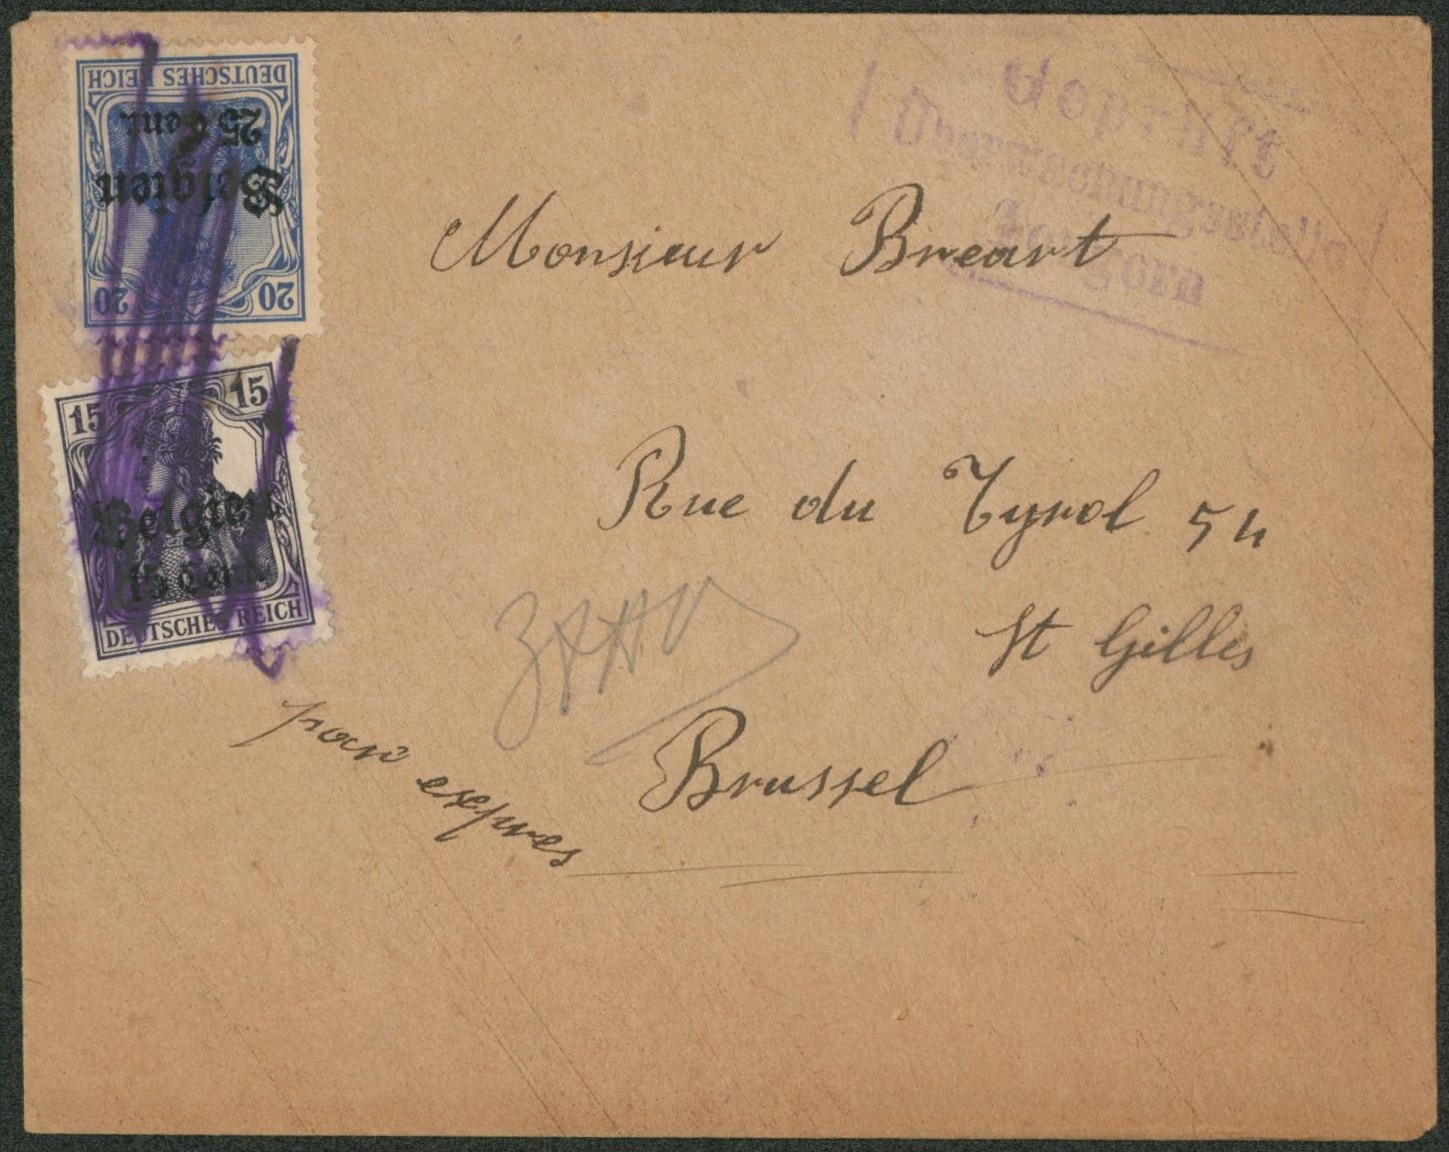 DEUTSCHES REICH
25 Cent.
Belgien
20 20
15 15
Belgien
15 Cent.
DEUTSCHES REICH
Geprüft
Überwachungsstelle
Monsieur Breart
Rue du Tyrol 54
St Gilles
Brussel
par expres